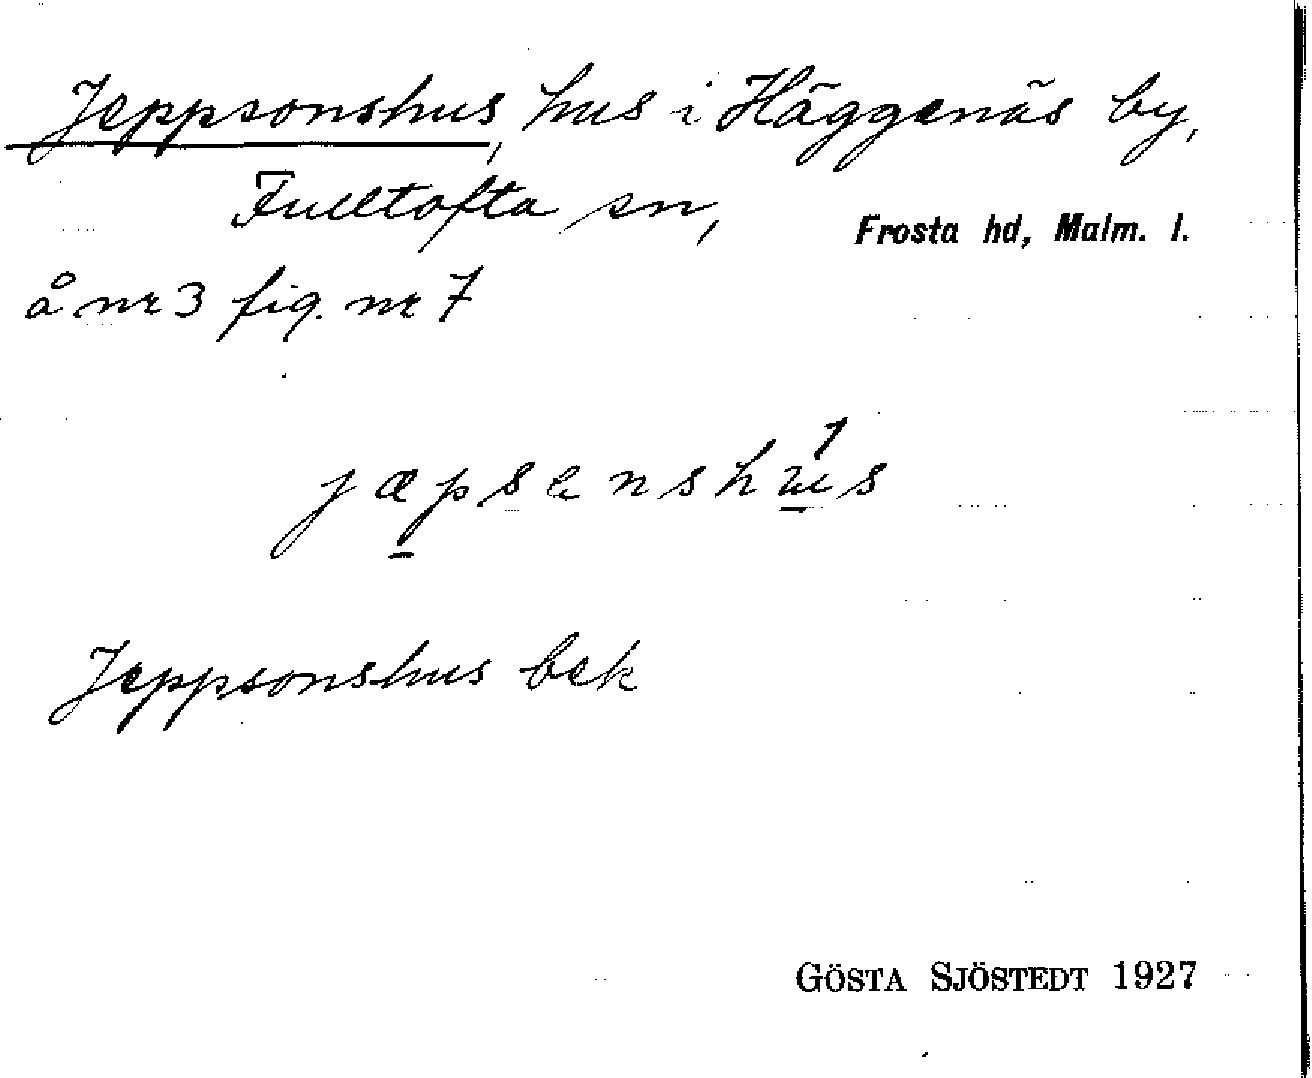 Jeppsonshus, hus i Häggenäs by,
Fulltofta sn, Frosta hd, Malm. l.
å nr 3 fig. nr 7
jæpsenshus
Jeppsonshus bek
GÖSTA SJÖSTEDT 1927